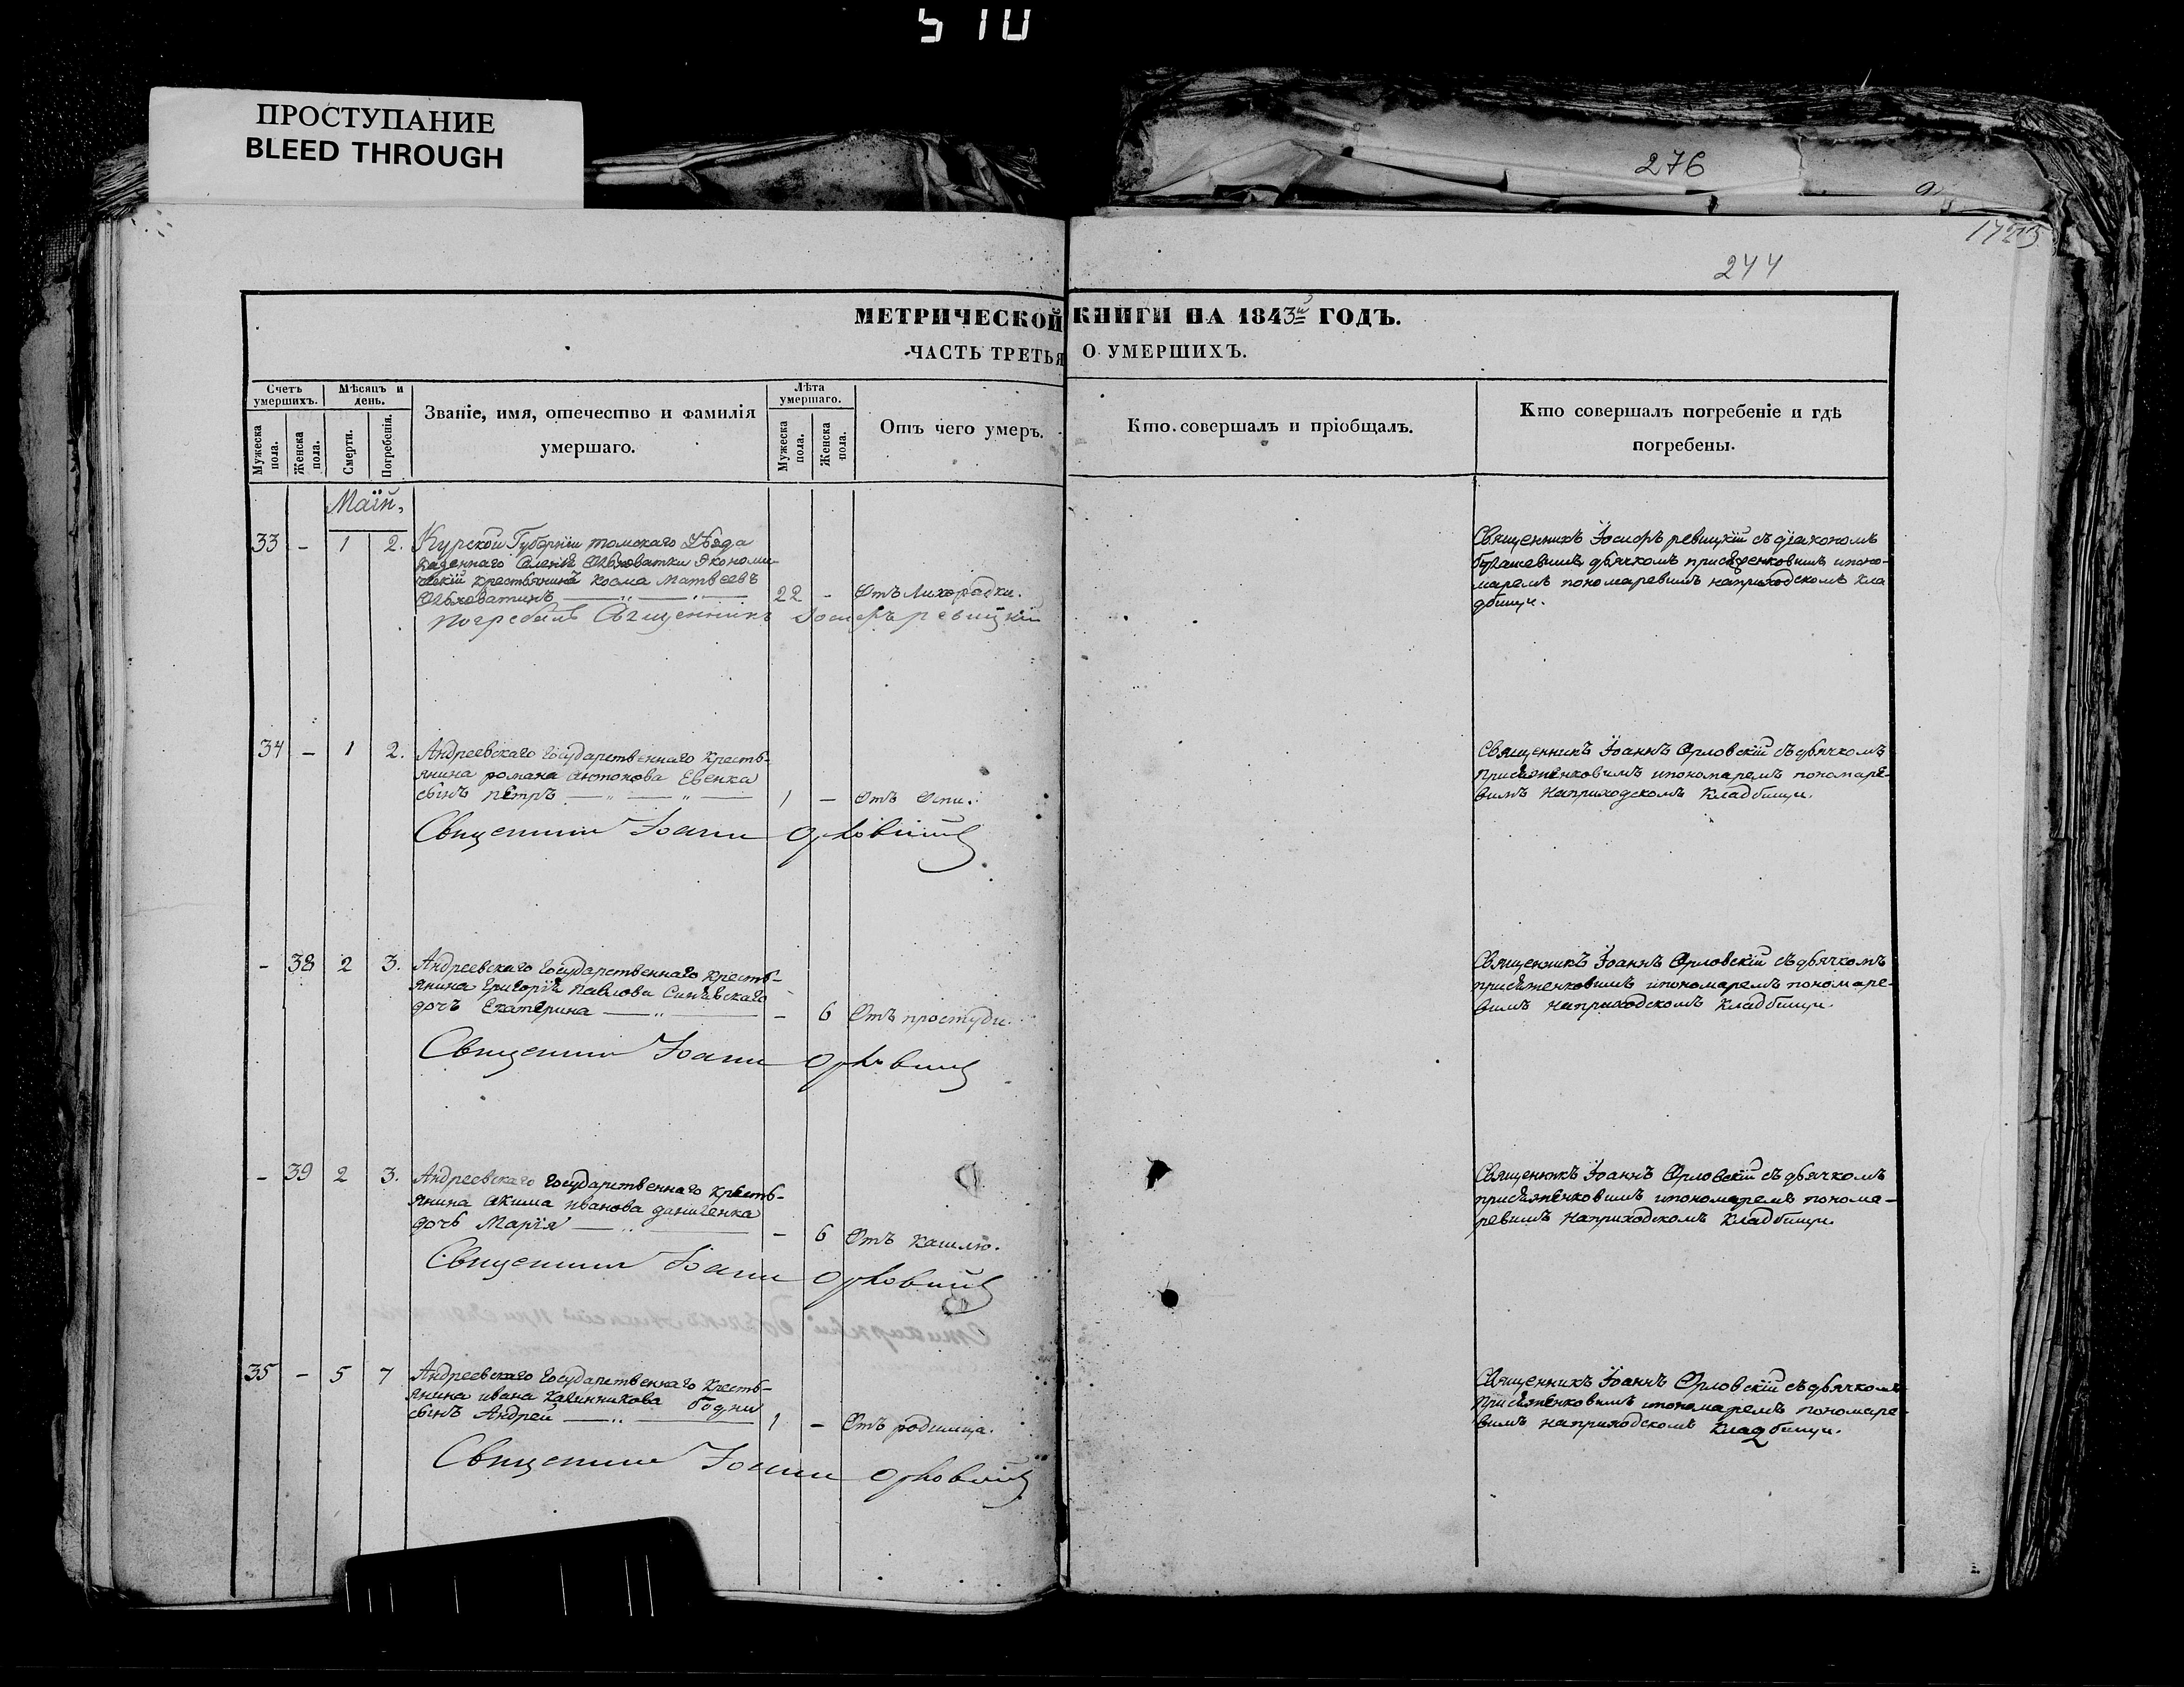 5 10
ПРОСТУПАНИЕ
BLEED THROUGH
276
244
МЕТРИЧЕСКОЙ КНИГИ НА 1843й ГОДЪ.
ЧАСТЬ ТРЕТЬЯ О УМЕРШИХЪ.
Счетъ умершихъ.
Мужеска пола.
Женска пола.
Мѣсяцъ и день.
Смерти.
Погребенія.
Званіе, имя, отечество и фамилія умершаго.
Лѣта умершаго.
Мужеска пола.
Женска пола.
Отъ чего умеръ.
Кто совершалъ и пріобщалъ.
Кто совершалъ погребеніе и гдѣ погребены.
Маїй,
33 - 1 2. Курской Губерніи Уѣзда
казеннаго Экономи-
ческій крестьянинъ Косма Матвѣевъ
22 - Отъ Лихорадки.
погребалъ Священникъ Іосифъ ревицкій
Священникъ Іосифъ ревицкій съ діакономъ
дьячкомъ ипоно-
маремъ пономаревимъ наприходскомъ кла
дбищи.
34 - 1 2. Андреевскаго Государственнаго Кресть-
янина романа антонова Евенка
сынъ пётръ 1 - Отъ Оспи.
Священникъ Іоаннъ Орловскій
Священникъ Іоаннъ Орловскій съ дьячкомъ
присяженковимъ ипономаремъ пономаре-
вимъ наприходскомъ кладбищи.
- 38 2 3. Андреевскаго Государственнаго Кресть-
янина григорія павлова Синявскаго
дочъ Екатерина - 6 Отъ простуди.
Священникъ Іоаннъ Орловскій
Священникъ Іоаннъ Орловскій съ дьячкомъ
присяженковимъ ипономаремъ пономаре-
вимъ наприходскомъ кладбищи.
- 39 2 3. Андреевскаго Государственнаго Кресть-
янина акима иванова даниленка
дочь Марія - 6 Отъ кашлю.
Священникъ Іоаннъ Орловскій
Священникъ Іоаннъ Орловскій съ дьячкомъ
присяженковимъ ипономаремъ понома-
ревимъ наприходскомъ кладбищи.
35 - 5 7 Андреевскаго Государственнаго Кресть-
янина ивана Калинникова
сынъ Андрей 1 - Отъ родимца.
Священникъ Іоаннъ Орловскій
Священникъ Іоаннъ Орловскій съ дьячкомъ
присяженковимъ ипономаремъ пономаре-
вимъ наприходскомъ кладбищи.